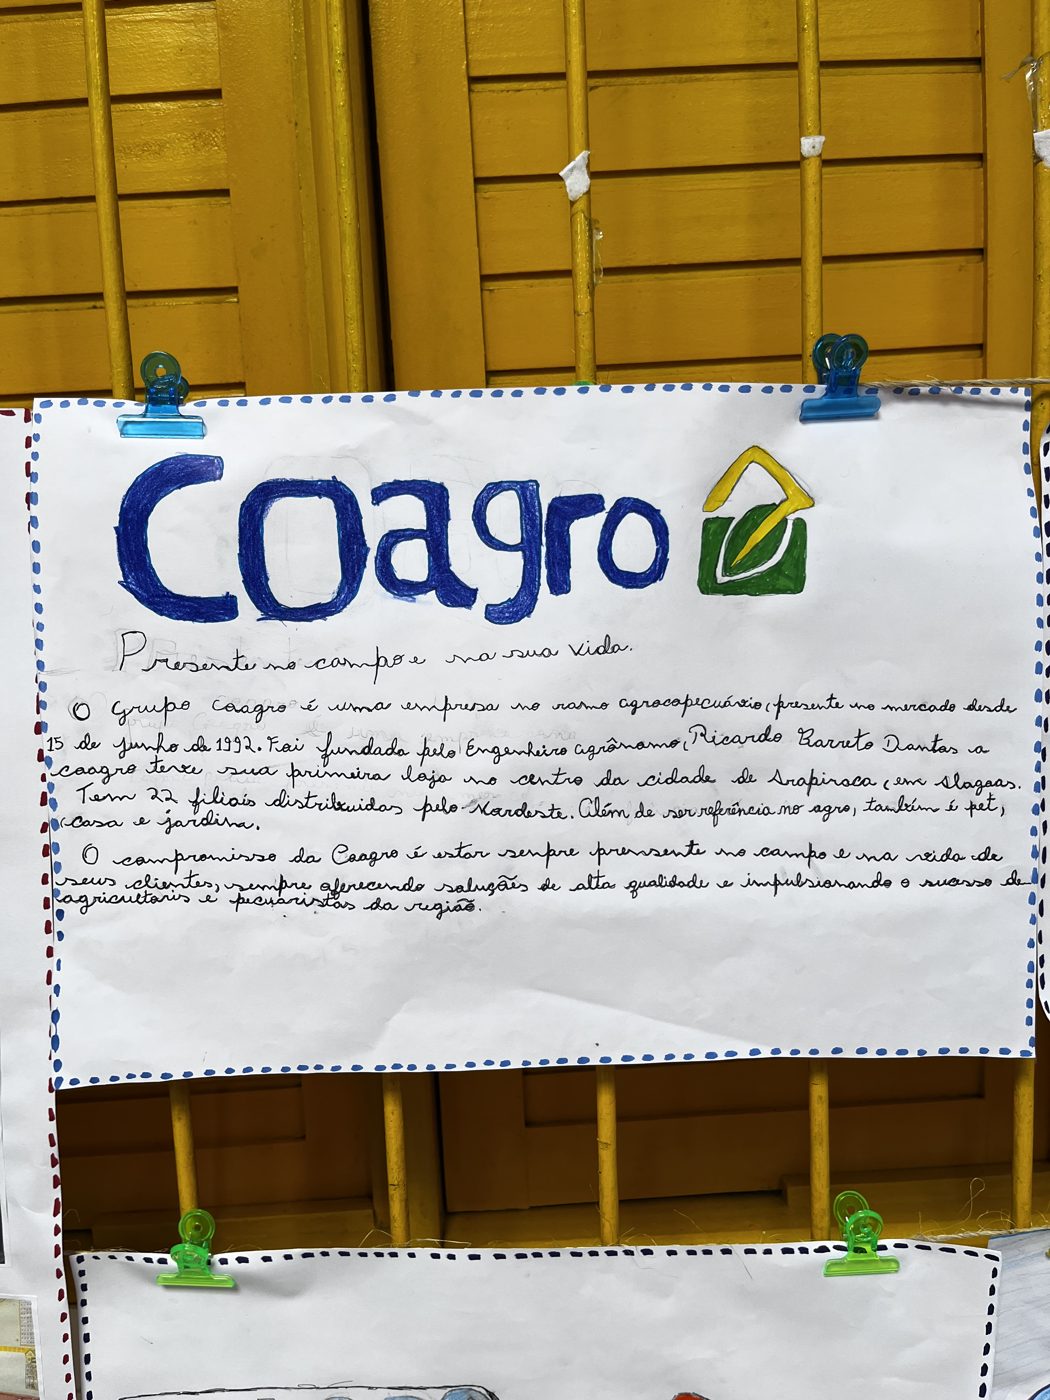 Coagro
Presente no campo e na sua vida.
O grupo Coagro é uma empresa no ramo agrocopecuário, presente no mercado desde
15 de junho de 1992. Foi fundada pelo Engenheiro agrônomo, Ricardo Barreto Dantas a
coagro teve sua primeira loja no centro da cidade de Arapiraca, em Alagoas.
Tem 22 filiais distribuidas pelo Nordeste. Além de ser referência no agro, também é pet,
casa e jardim.
O compromisso da Coagro é estar senpre prensente no campo e na vida de
seus clientes, sempre oferecendo soluções de alta qualidade e impulsionando o sucesso de
agricultoris e pecuaristas da região.